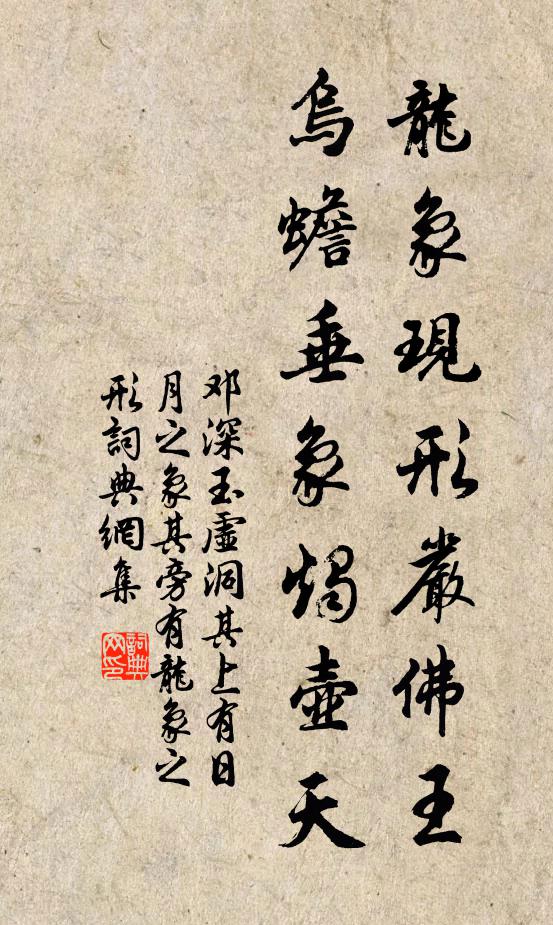 龍象現形嚴佛王
烏蟾垂象燭壺天
邓深玉虛洞其上有日
月之象其旁有龍象之
形詞典網集
詞典网印